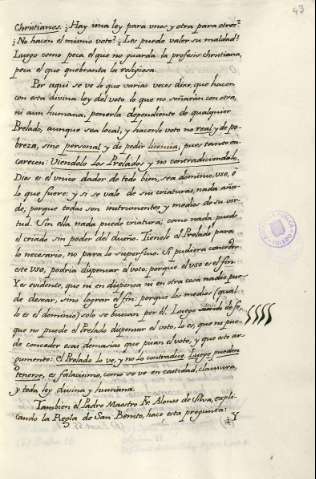 43
Christianos. ¿Hay una ley para unos, y otra para otros?
¿No hacen el mismo voto? ¿Les puede valer su maldad?
Luego como peca el que no guarda la profesion christiana,
peca el que quebranta la religiosa.
Por aqui se ve lo que varias veces dixe, que hacen
con esta divina ley del voto lo que no hicieran con otra,
ni aun humana, ponerla dependiente de qualquier
Prelado, aunque sea local, y hacerlo voto no real y de po-
breza, sino personal y de pedir licencia, pues tanto en-
carecen: Viendolo los Prelados y no contradiciendolo.
Dios es el unico dador de todo bien, sea dominio, uso, ó
lo que fuere: y si se vale de sus criaturas, nada aña-
de, porque todas son instrumentos y medios de su vir-
tud. Sin ella nada puede criatura; como nada puede
el criado sin poder del dueño. Tienele el Prelado para
lo necesario, no para lo superfluo. Si pudiera conceder
este uso, podria dispensar el voto; porque el uso es el fin.
Y es evidente, que ni en dispensa ni en otra cosa nadie pue-
de desear, sino lograr el fin: porque los medios (qual
lo es el dominio) solo se buscan por él. Luego siendo de fe,
que no puede el Prelado dispensar el voto, lo es, que no pue-
de conceder esas demasias que piden el voto, y que este ar-
gumento: el Prelado lo ve, y no lo contradice, luego pueden
tenerse, es falacisimo, como se ve en castidad, clausura,
y toda ley divina y humana.
Tambien el Padre Maestro Fr. Alonso de Silva, expli-
cando la Regla de San Benito, hace esta pregunta: Y